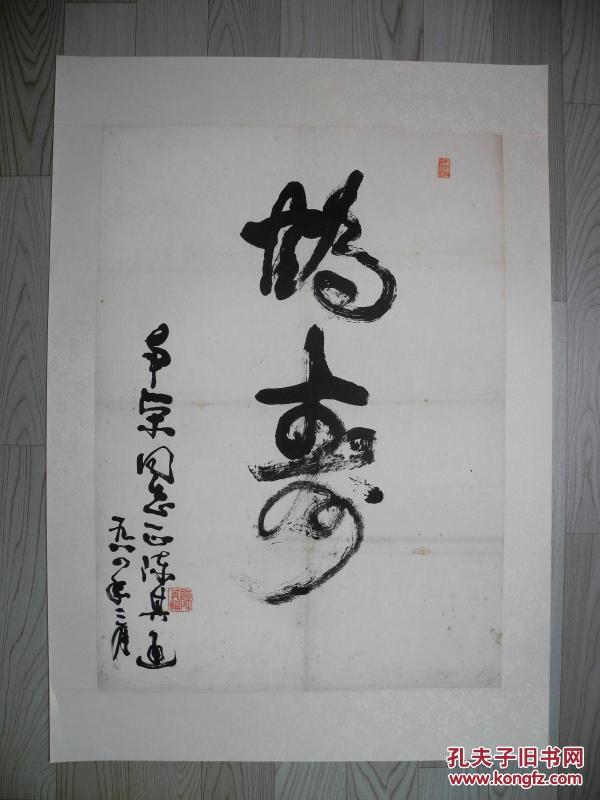 鹤寿
同志正陈其通
一九八四年二月
孔夫子旧书网
www.kongfz.com